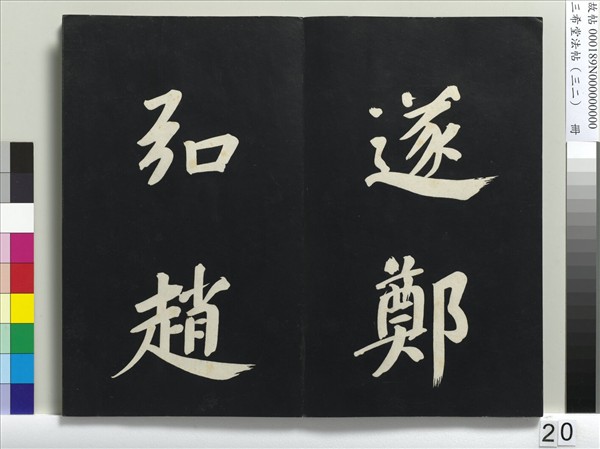 遂鄭
弘趙
故帖 000189N000000000
三希堂法帖（三二） 冊
20